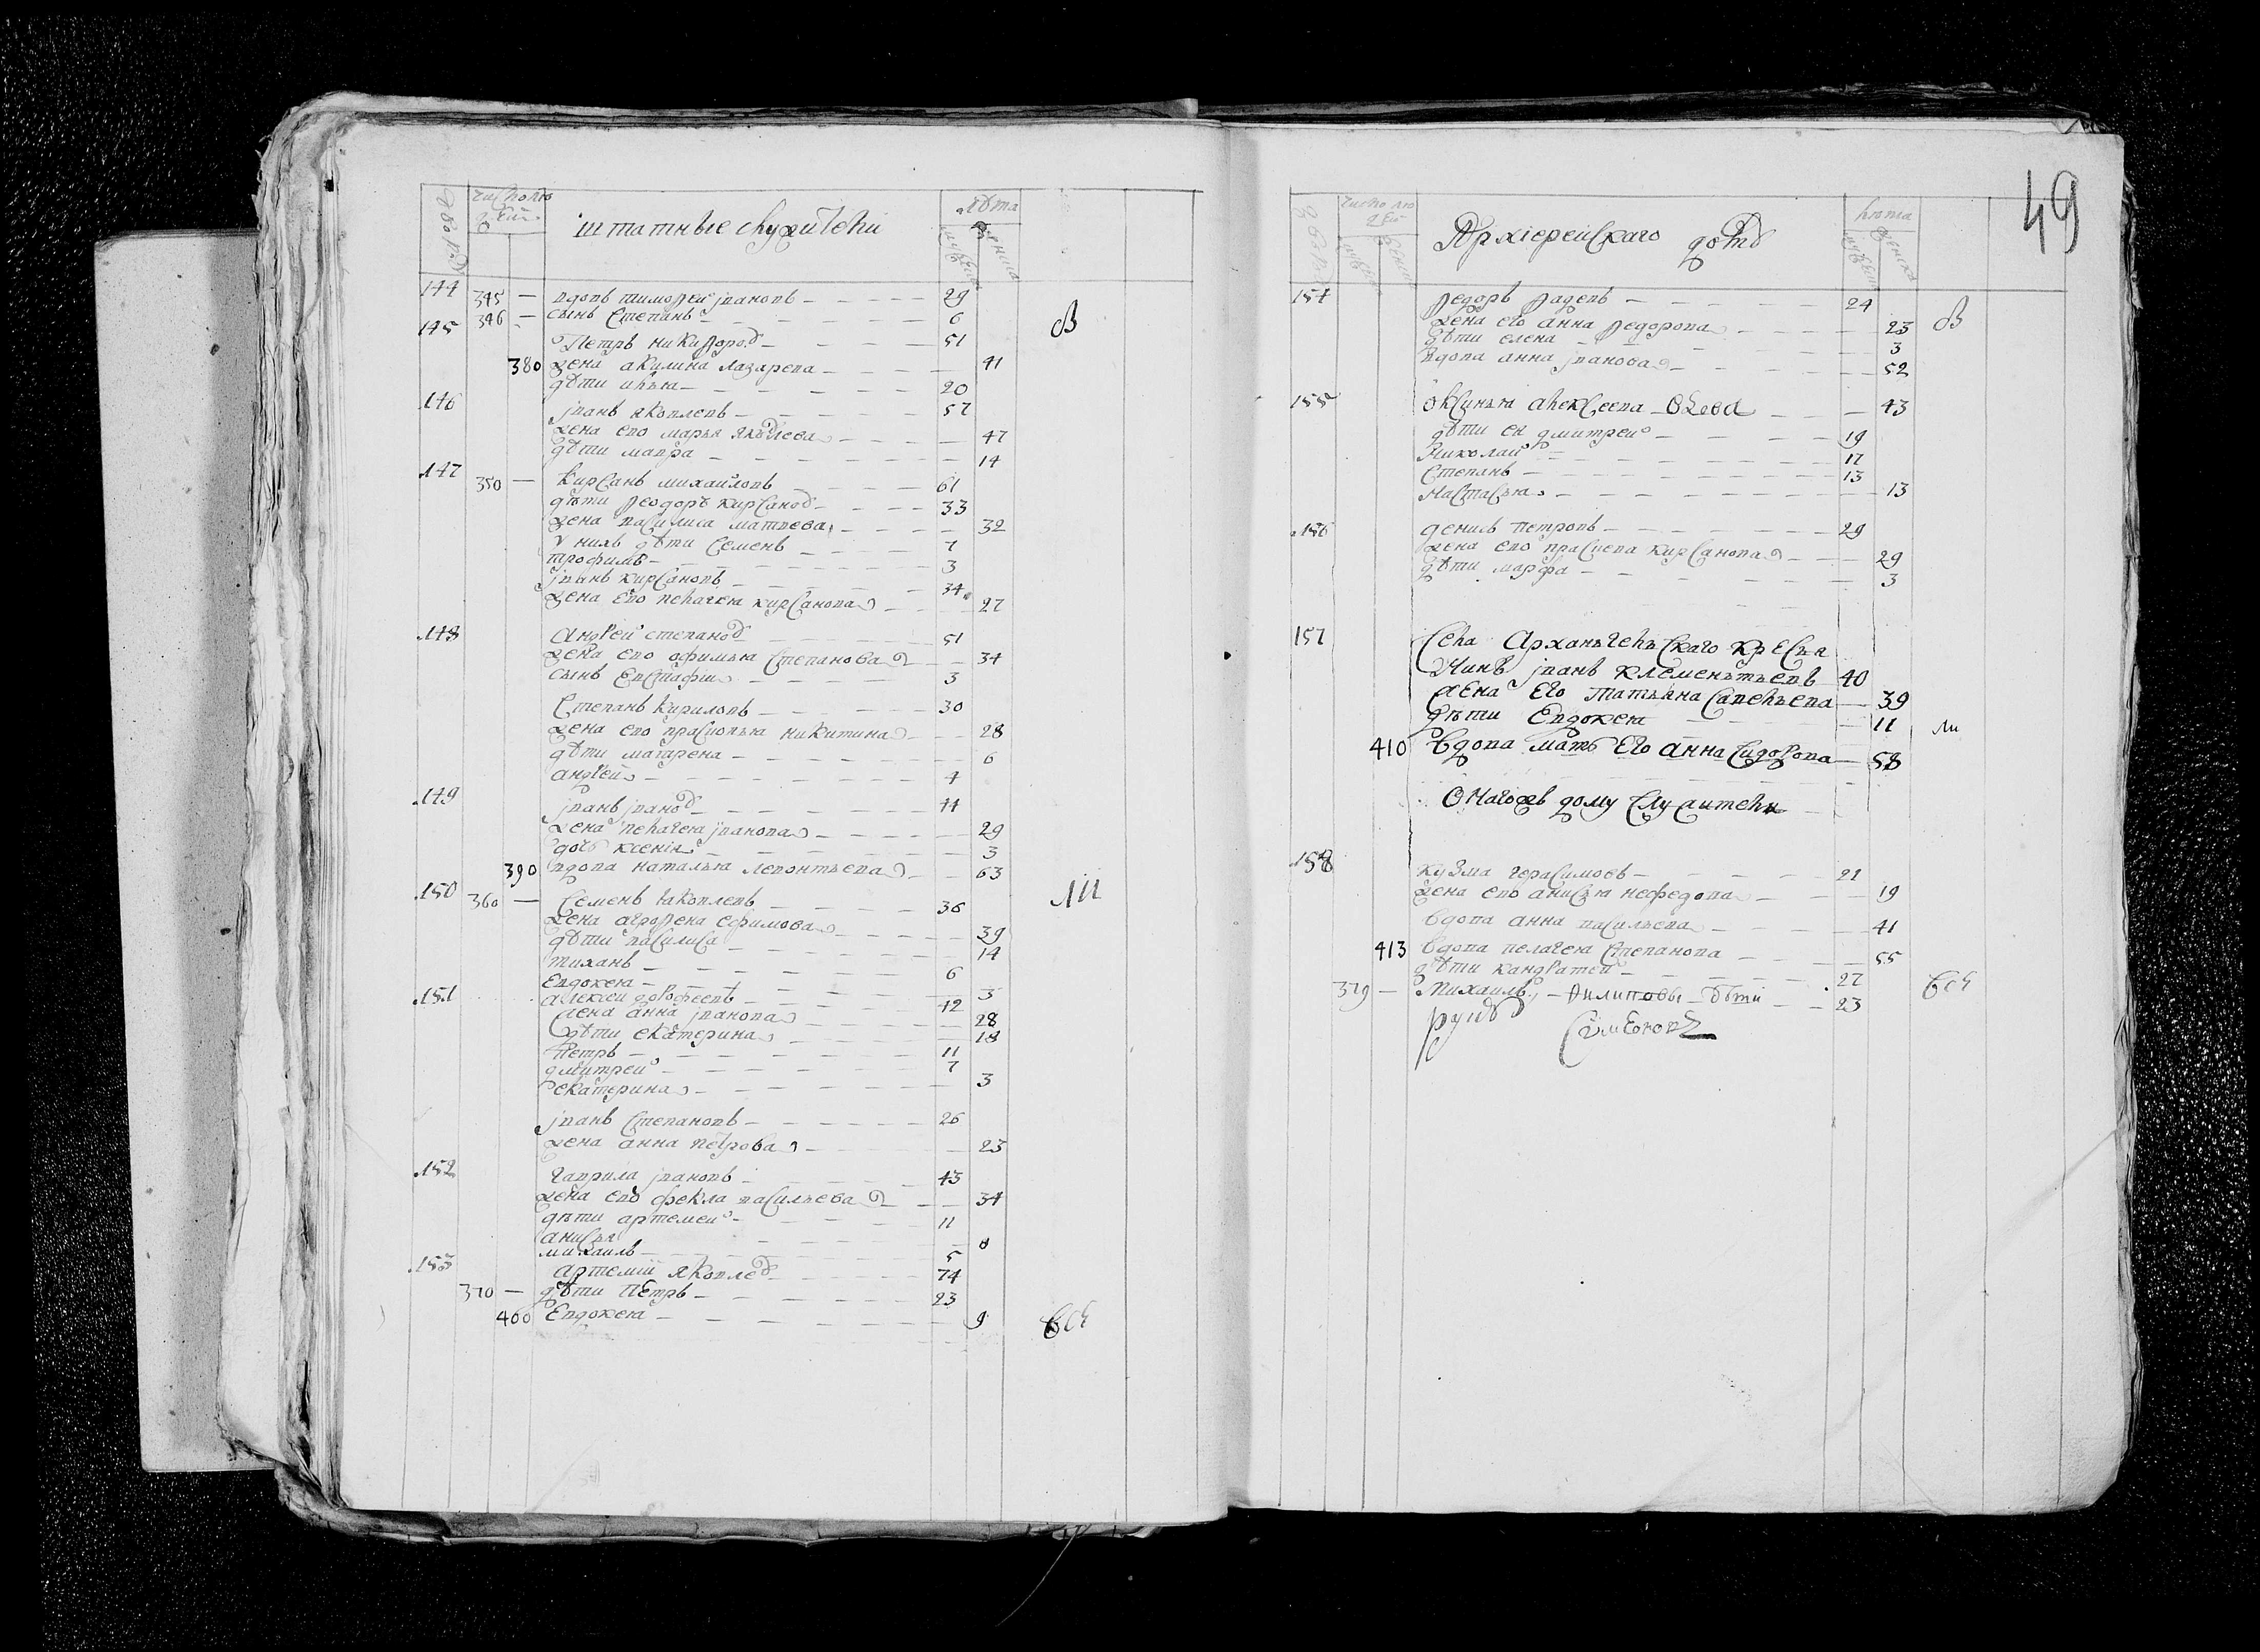 число людей
штатные служители
лѣта
144 345 — вдовъ тимофей ивановъ — 29
346 — сынъ степанъ — 6
145 Петръ никифоровъ — 51
380 жена акилина лазарева — 41
дѣти илья — 20
146 иванъ яковлевъ — 57
жена ево марья яковлева — 47
дѣти мавра — 14
147 350 — кирсанъ михайловъ — 61
дѣти феодоръ кирсановъ — 33
жена василиса матвева — 32
у нихъ дѣти семенъ — 7
трофимъ — 3
иванъ кирсановъ — 34
жена ево пелагея кирсанова — 27
148 андрей степановъ — 51
жена ево офимья степанова — 34
сынъ евстафи — 3
степанъ кириловъ — 30
жена ево прасковья никитина — 28
дѣти магарена — 6
андрей — 4
149 иванъ ивановъ — 44
жена пелагея иванова — 29
дочь ксения — 3
390 вдова наталья леонтьева — 63
150 360 — семенъ яковлевъ — 36
жена агрофена ефимова — 39
дѣти василиса — 14
тиханъ — 6
евдокея — 3
151 алексеи дорофеевъ — 42
жена анна иванова — 28
дѣти екатерина — 18
петръ — 11
дмитреи — 7
екатерина — 3
иванъ степановъ — 26
жена анна петрова — 23
152 гаврила ивановъ — 43
жена ево фекла васильева — 34
дѣти артемеи — 11
анисья — 8
михаилъ — 5
153 артемий яковлевъ — 74
370 — дѣти петръ — 23
400 евдокея — 9
49
число лю дей
Архиерейскаго дому
лѣта
154 федоръ фадевъ — 24
жена его анна федорова — 23
дѣти елена — 3
вдова анна иванова — 52
155 оксинья алексеева вдова — 43
дѣти ея дмитрей — 19
николай — 17
степанъ — 13
настасья — 13
156 денисъ петровъ — 29
жена ево прасковья кирсанова — 29
дѣти марфа — 3
157 села Архангельскаго крестья
нинъ иванъ клементьевъ 40
жена его татьяна савельева — 39
дѣти евдокея — 11
410 вдова мать его анна сидорова — 58
Онагожъ дому служители
158 кузма герасимовъ — 21
жена ево анисья нефедова — 19
вдова анна васильева — 41
413 вдова пелагея степанова — 55
дѣти кандратей — 27
379 — михаилъ — филиповы дѣти — 23